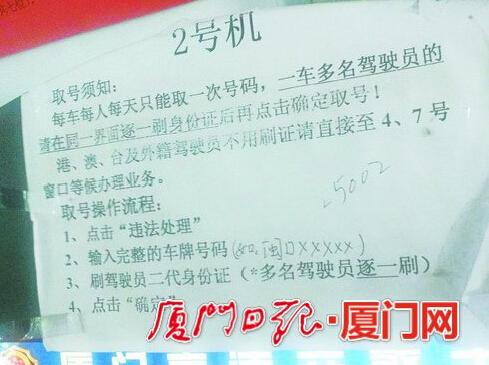 2号机
取号须知：
每车每人每天只能取一次号码，一车多名驾驶员的
请在同一界面逐一刷身份证后再点击确定取号！
港、澳、台及外籍驾驶员不用刷证请直接至4、7号
窗口等候办理业务。
取号操作流程：
25002
1、点击“违法处理”
2、输入完整的车牌号码(如:闽DXXXXX)
3、刷驾驶员二代身份证（*多名驾驶员逐一刷）
4、点击“确定”
厦门日报·厦门网